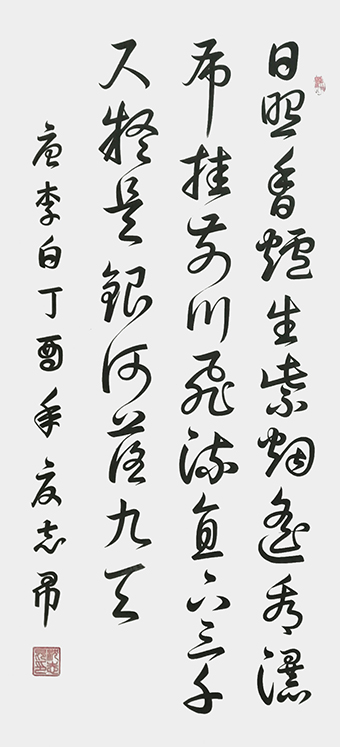 日照香爐生紫烟遙看瀑
布挂前川飛流直下三千
尺疑是銀河落九天
唐李白丁酉年夏志